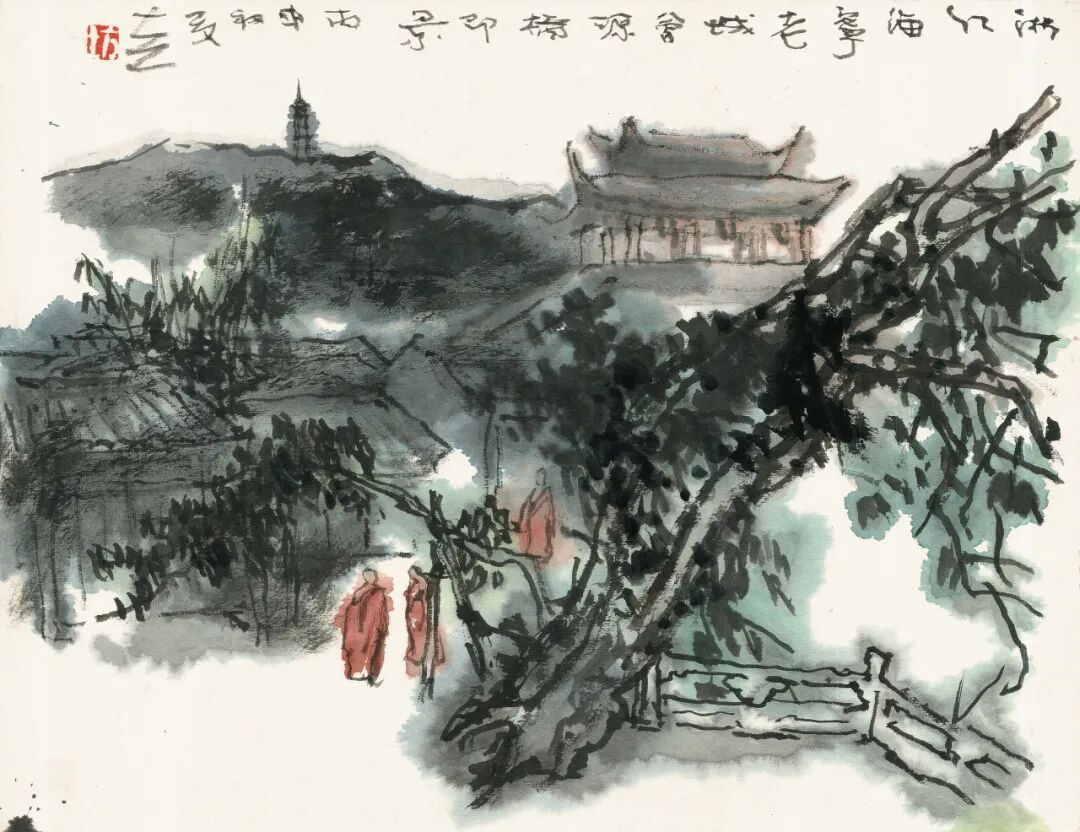 浙江海寧老城曾源橋即景丙申初夏